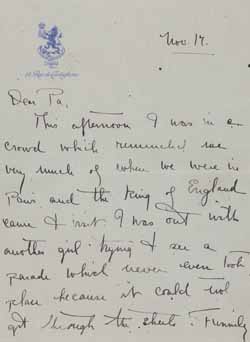 Nov. 17.
Dear Pa,
This afternoon I was in a
crowd which reminded me
very much of when we were in
Paris and the King of England
came & I was out with
another girl trying to see a
parade which never even took
place because it could not
get through the streets.